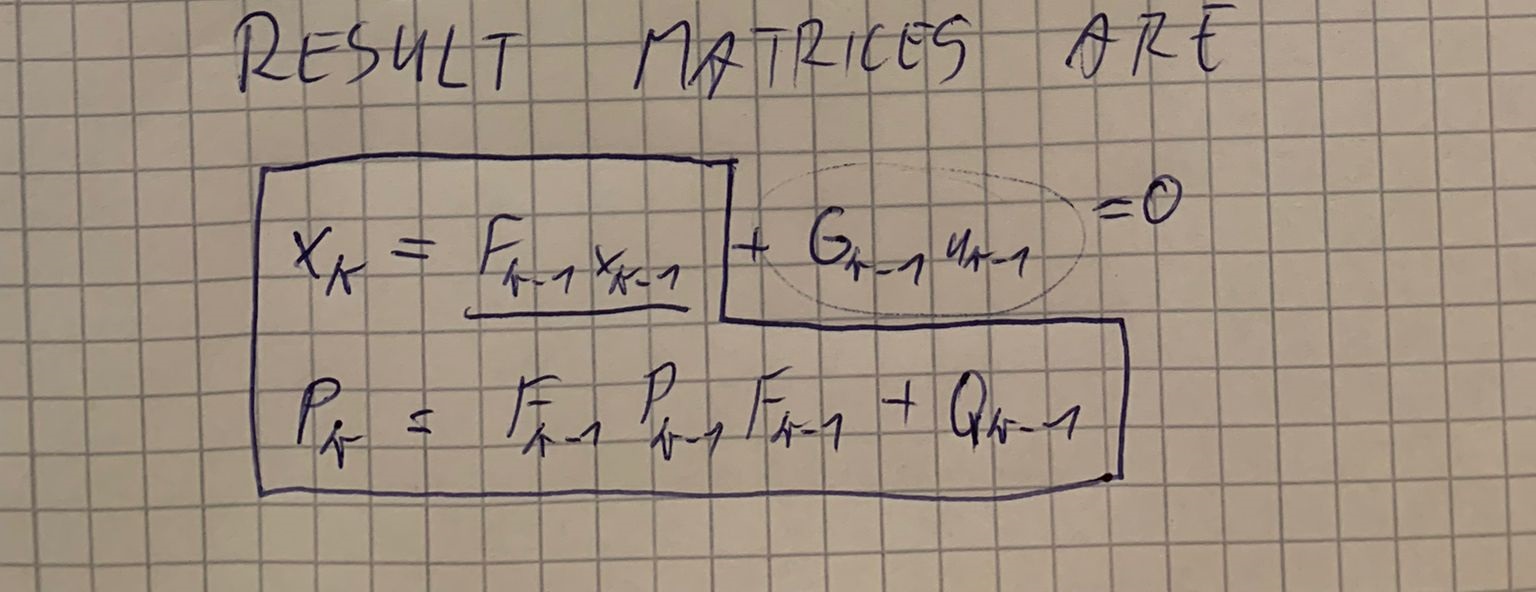 RESULT MATRICES ARE
x_k = F_{k-1} x_{k-1} + G_{k-1} u_{k-1} = 0
P_k = F_{k-1} P_{k-1} F_{k-1} + Q_{k-1}